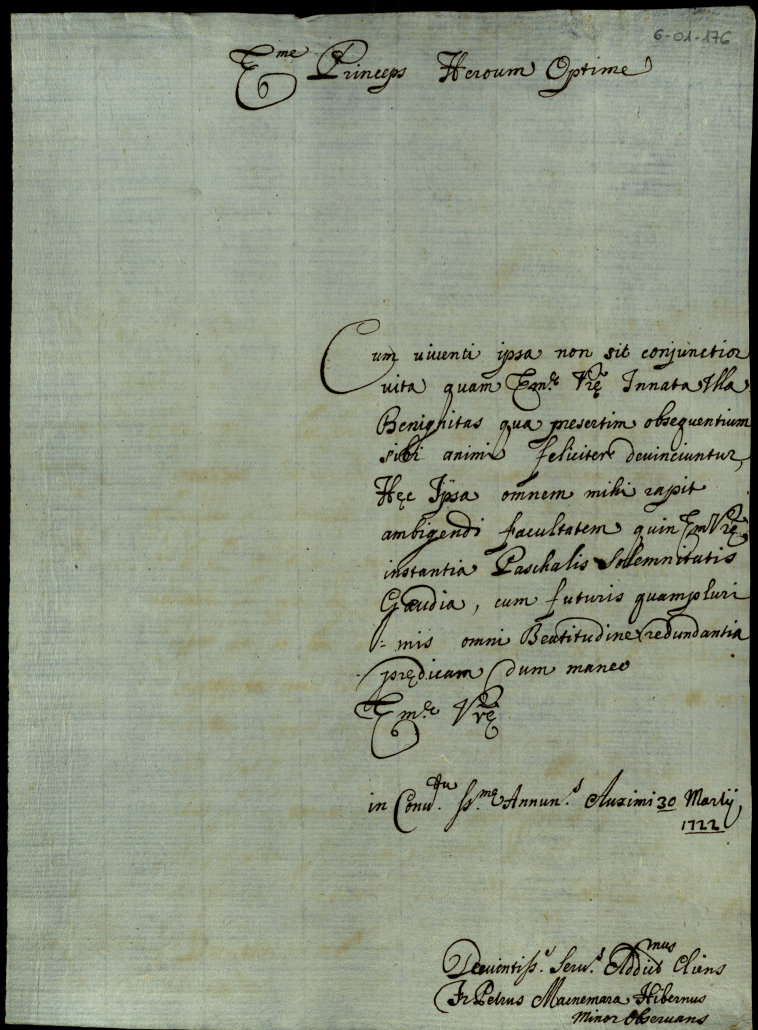 6-01-176
Eme Princeps Heroum Optime
Cum viuenti ipsa non sit conjunctior
vita quam Eme Vrę Innata Illa
Benignitas qua presertim obsequentium
sibi animi feliciter deuinciuntur,
Hęc Ipsa omnem mihi rapit
ambigendi facultatem quin Em Vrę
instantia Paschalis Sollemnitatis
Gaudia, cum futuris quampluri
:mis omni Beatitudine redundantia
prędicam dum maneo
Eme Vrę
in Conu.tu SS.me Annun. Auximi 30 Martij
1722
Seru. Addict.mus Cliens
Fr Petrus Macnemara Hibernus
Minor Obseruans